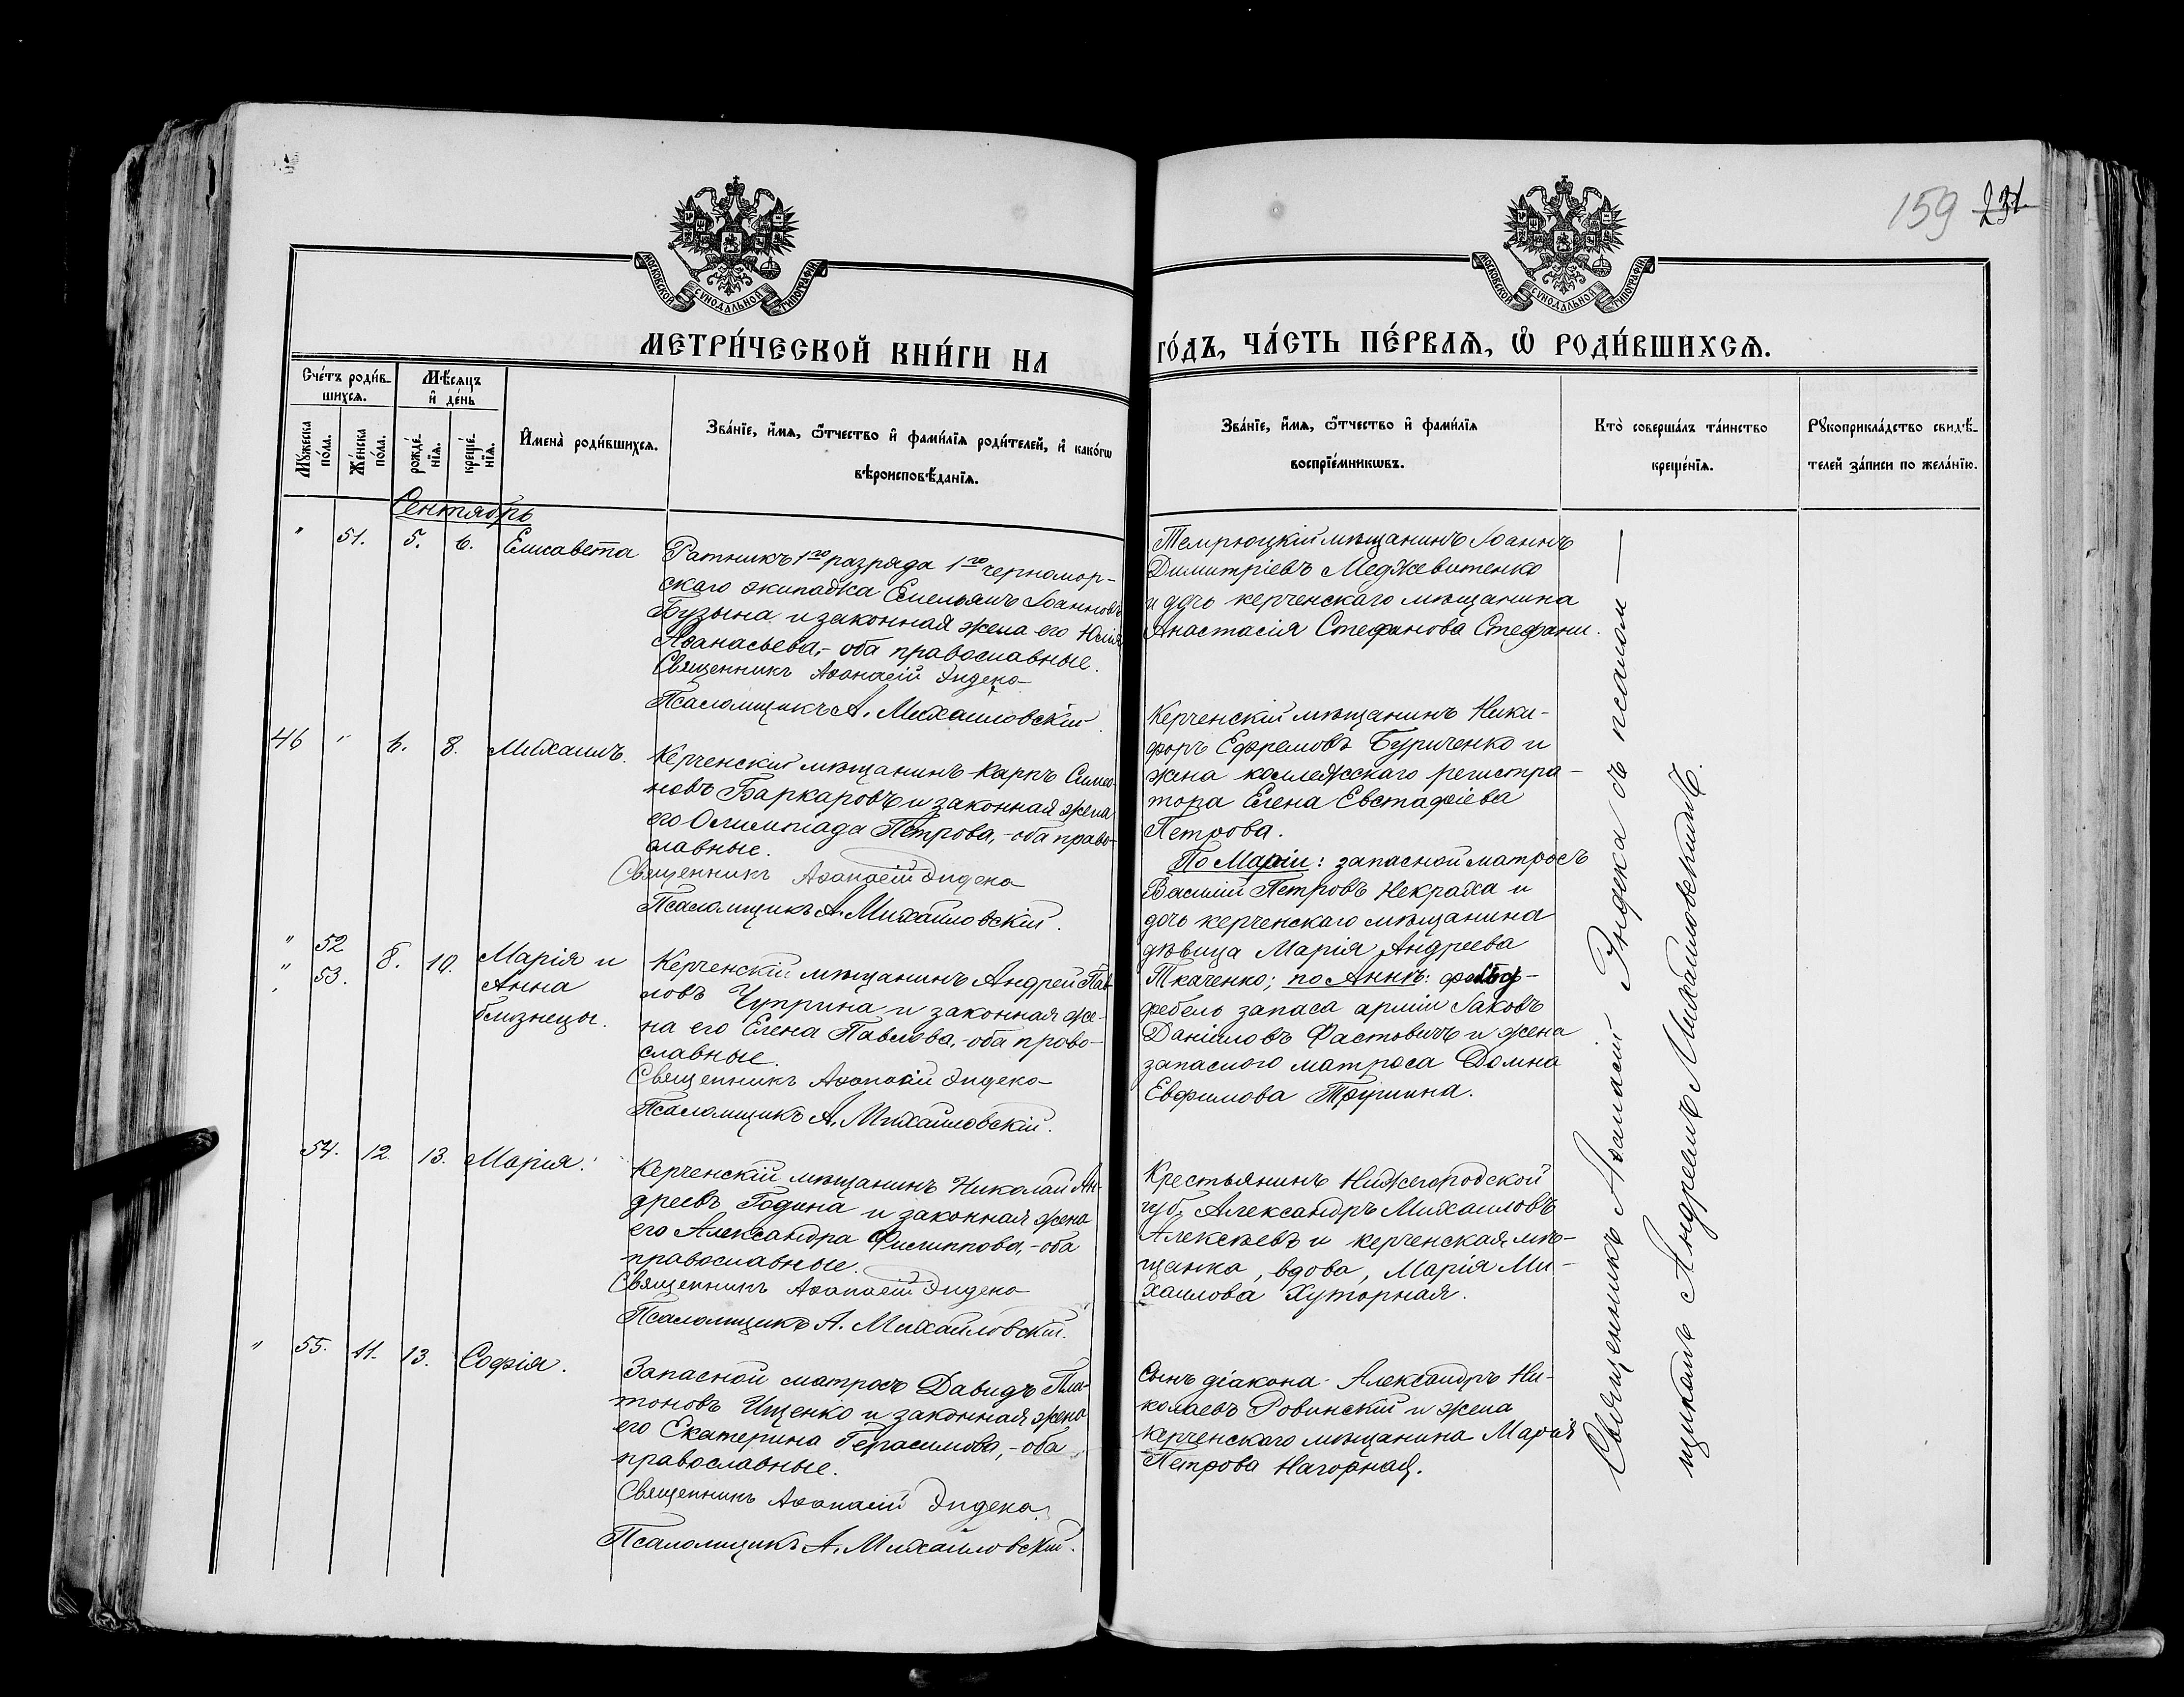 159 231
МОСКОВСКОЙ СУНОДАЛЬНОЙ ТИПОГРАФІИ
МОСКОВСКОЙ СУНОДАЛЬНОЙ ТИПОГРАФІИ
МЕТРИ́ЧЕСКОЙ КНИ́ГИ НА
ГО́ДЪ, ЧА́СТЬ ПЕ́РВАѦ, Ѡ҆ РОДИ́ВШИХСѦ.
Сче́тъ роди́в-
шихсѧ.
Мѣ́сѧцъ
и҆ де́нь
Мꙋ́жеска
по́ла.
Же́нска
по́ла.
рожде́-
нїѧ.
креще́-
нїѧ.
И҆мена̀ роди́вшихсѧ.
Зва́нїе, и҆́мѧ, ѻ҆́тчество и҆ фами́лїѧ роди́телей, и҆ како́гѡ
вѣроисповѣ́данїѧ.
Зва́нїе, и҆́мѧ, ѻ҆́тчество и҆ фами́лїѧ
воспрїе́мникѡвъ.
Кто̀ соверша́лъ та́инство
креще́нїѧ.
Рꙋкоприкла́дство свидѣ́-
телей за́писи по жела́нїю.
Сентябрь
" 51. 5. 6. Елисавета
Ратникъ 1го разряда 1го черномор-
скаго экипажа Емельянъ Іоанновъ
Бузына и законная жена его Юлія
Аѳанасьева,- оба православные.
Священникъ Аѳанасій Эндека
Псаломщикъ А. Михайловскій
Темрюцкій мѣщанинъ Іоаннъ
Димитріевъ Меджевитенко
и дочь керченскаго мѣщанина
Анастасія Стефанова Стефани.
46 " 6. 8. Михаилъ.
Керченскій мѣщанинъ Карпъ Симео-
новъ Баркаровъ и законная жена
его Олимпіада Петрова,- оба право-
славные.
Священникъ Аѳанасій Эндека
Псаломщикъ А. Михайловскій.
Керченскій мѣщанинъ Ники-
форъ Ефремовъ Буриченко и
жена коллежскаго регистра-
тора Елена Евстафіева
Петрова.
" 52
" 53. 8. 10. Марія и
Анна
близнецы.
Керченскій мѣщанинъ Андрей Пав-
ловъ Чуприна и законная же-
на его Елена Павлова,- оба право-
славные.
Священникъ Аѳанасій Эндека
Псаломщикъ А. Михайловскій.
По Маріи: запасной матросъ
Василій Петровъ Некраха и
дочь керченскаго мѣщанина
дѣвица Марія Андреева
Ткаченко; по Аннѣ: фельд-
фебель запаса арміи Іаковъ
Даніиловъ Фастовичъ и жена
запасного матроса Домна
Евфимова Трушина.
54. 12. 13. Марія.
Керченскій мѣщанинъ Николай Ан-
дреевъ Година и законная жена
его Александра Филиппова,- оба
православные.
Священникъ Аѳанасій Эндека
Псаломщикъ А. Михайловскій.
Крестьянинъ Нижегородской
губ. Александръ Михаиловъ
Алексѣевъ и керченская мѣ-
щанка, вдова, Марія Ми-
хаилова Хуторная.
" 55. 11. 13. Софія.
Запасной матросъ Давидъ Пла-
тоновъ Ищенко и законная жена
его Екатерина Герасимова,- оба
православные.
Священникъ Аѳанасій Эндека
Псаломщикъ А. Михайловскій.
Сынъ діакона Александръ Ни-
колаевъ Ровинскій и жена
керченскаго мѣщанина Марія
Петрова Нагорная.
Священникъ Аѳанасій Эндека съ псалом-
щикомъ Андреемъ Михайловскимъ.